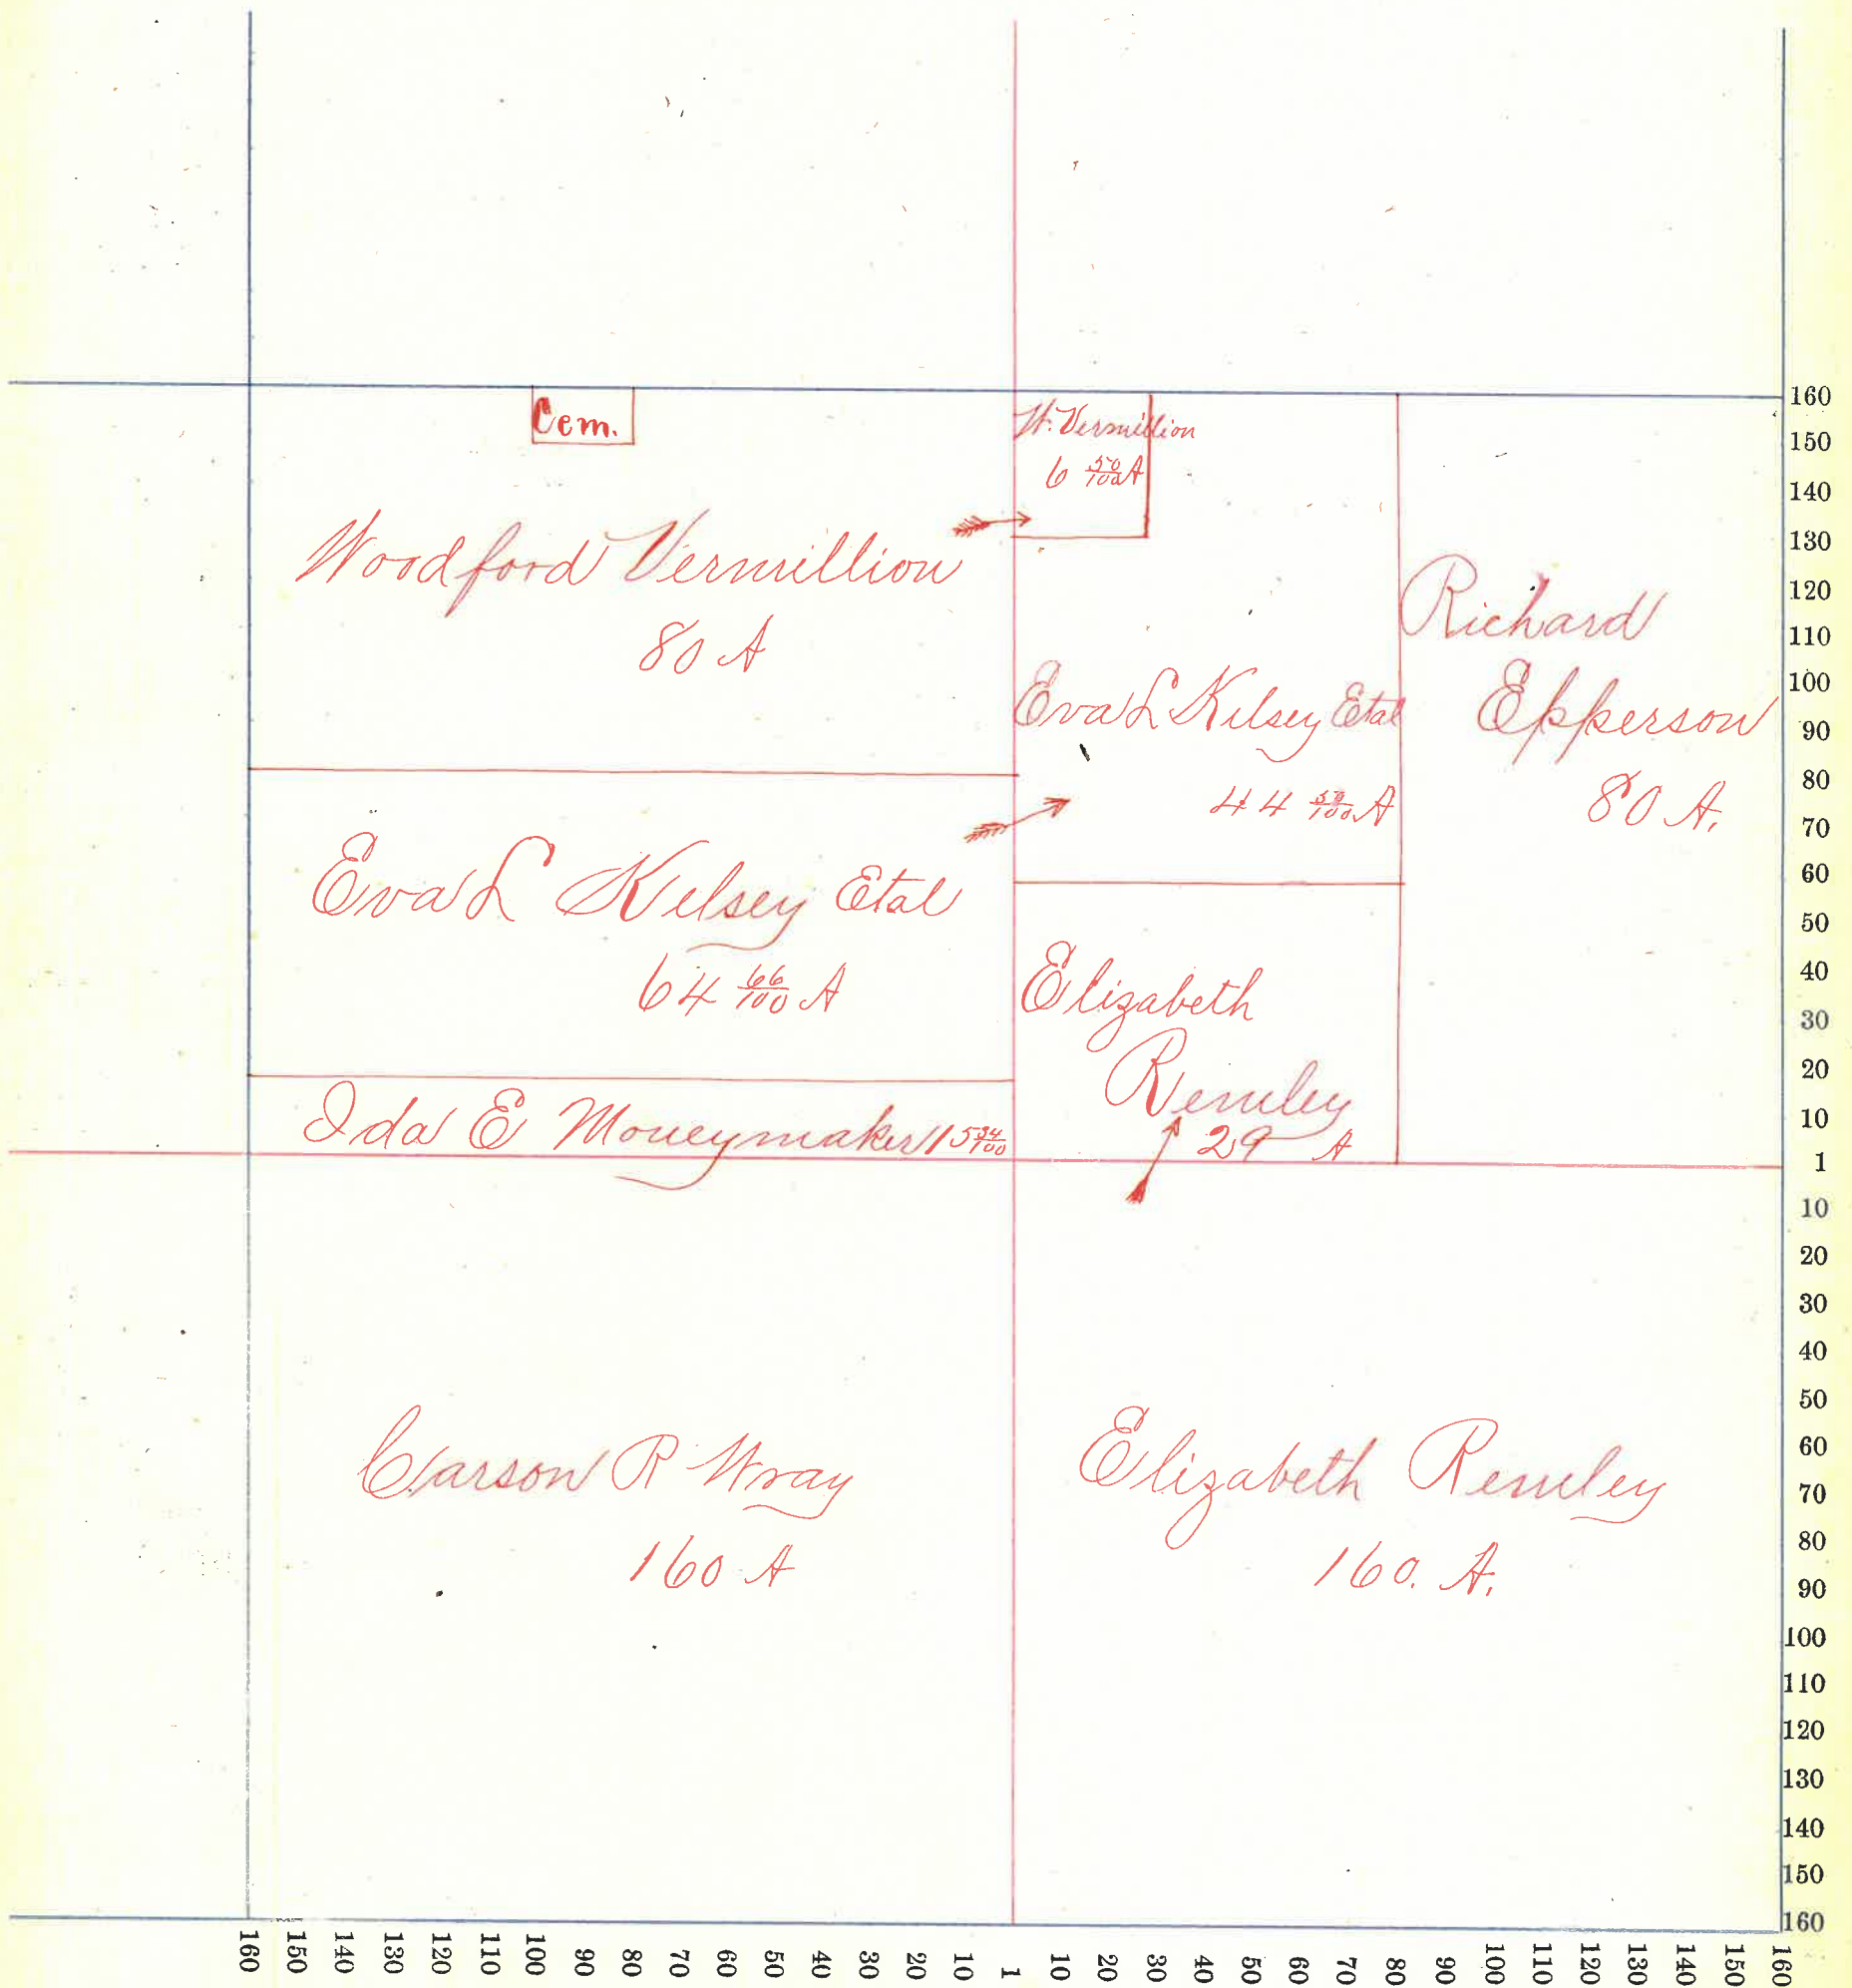 Cem.
Woodford Vermillion
80 A
W. Vermillion
6 50/100 A
Richard
Epperson
80 A.
Eva L Kelsey Etal
44 50/100 A
Eva L Kelsey Etal
64 66/100 A
Elizabeth
Remley
29 A
Ida E Moneymaker 15 34/100
Carson R Wray
160 A
Elizabeth Remley
160. A.
160
150
140
130
120
110
100
90
80
70
60
50
40
30
20
10
1
10
20
30
40
50
60
70
80
90
100
110
120
130
140
150
160
160 150 140 130 120 110 100 90 80 70 60 50 40 30 20 10 1 10 20 30 40 50 60 70 80 90 100 110 120 130 140 150 160